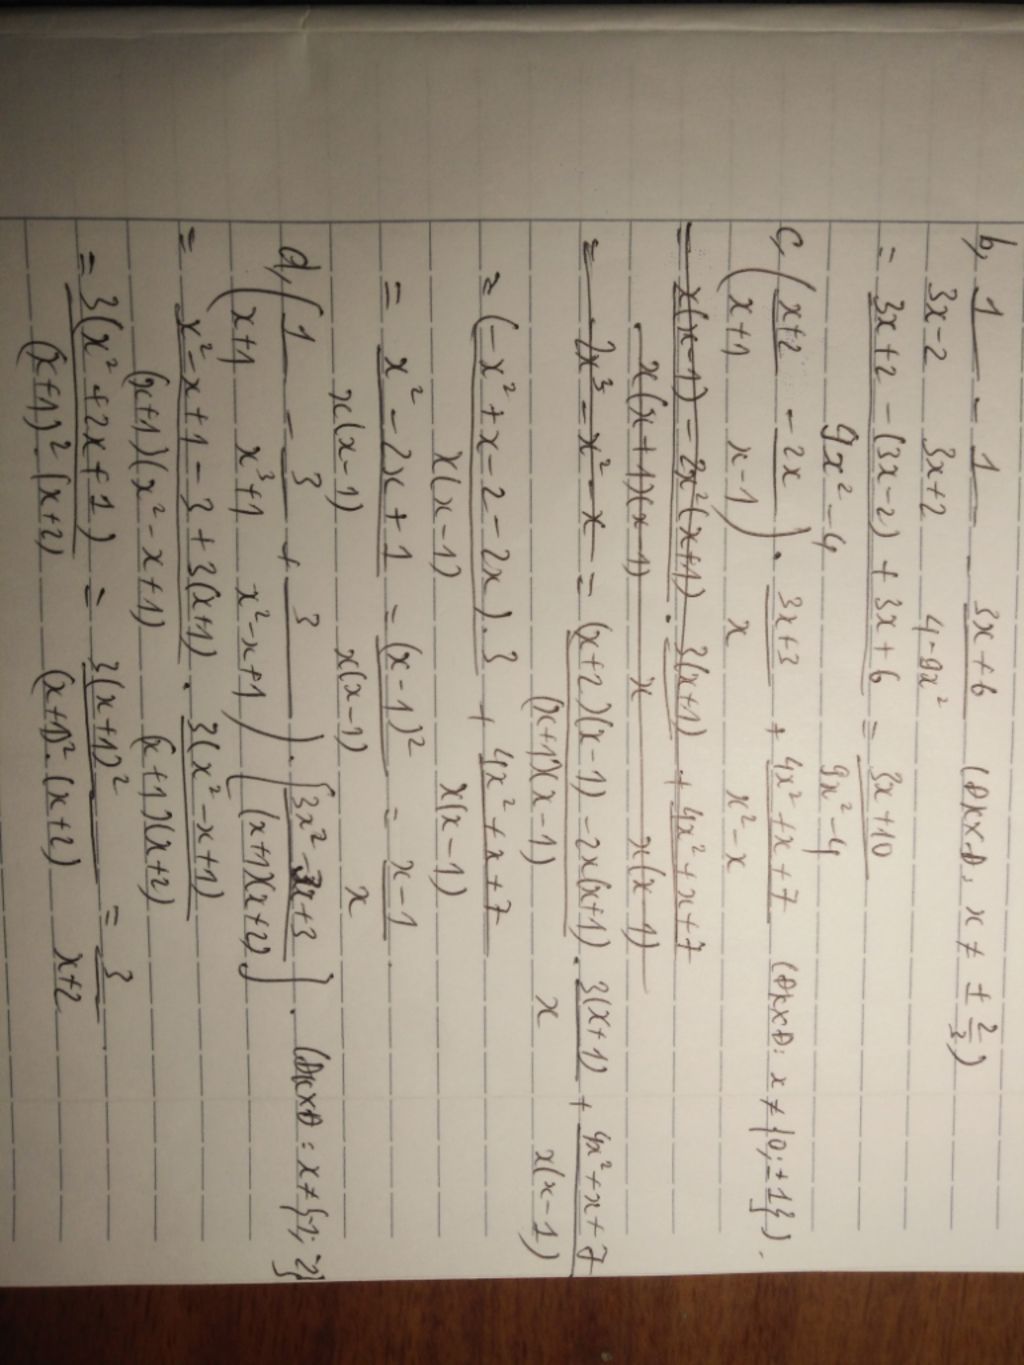 b, 1/(3x-2) - 1/(3x+2) - (3x+6)/(4-9x²) (ĐKXĐ: x ≠ ± 2/3)
= (3x+2-(3x-2)+3x+6)/(9x²-4) = (3x+10)/(9x²-4)
c, ((x+2)/(x+1) - 2x/(x-1)) . (3x+3)/x + (4x²+x+7)/(x²-x) (ĐKXĐ: x ≠ {0;±1}).
= (x(x-1)-2x²(x+1))/(x(x+1)(x-1)) . 3(x+1)/x + (4x²+x+7)/(x(x-1))
= 2x³-x²-x = ((x+2)(x-1)-2x(x+1))/((x+1)(x-1)) . 3(x+1)/x + (4x²+x+7)/(x(x-1))
= ((-x²+x-2-2x).3)/(x(x-1)) + (4x²+x+7)/(x(x-1))
= (x²-2x+1)/(x(x-1)) = (x-1)²/(x(x-1)) = (x-1)/x
d, (1/(x+1) - 3/(x³+1) + 3/(x²-x+1)) . [(3x²-3x+3)/((x+1)(x+2))] . (ĐKXĐ: x≠{-1;-2}
= (x²-x+1-3+3(x+1))/((x+1)(x²-x+1)) . 3(x²-x+1)/((x+1)(x+2))
= 3(x²+2x+1)/((x+1)².(x+2)) = 3(x+1)²/((x+1)².(x+2)) = 3/(x+2)